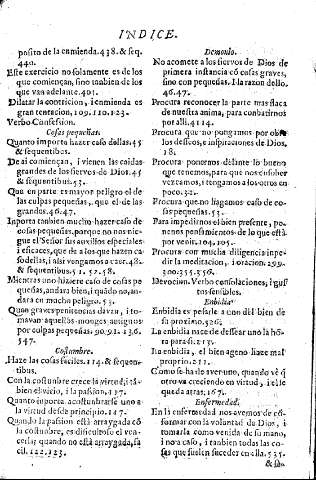 INDICE.
posito de la enmienda. 438. & seq.
440.
Este exercicio no solamente es de los
que comiençan, sino tanbien de los
que van adelante. 401.
Dilatar la contricion, i enmienda es
gran tentacion, 109. 110. 123.
Verbo Confession.
Cosas pequeñas.
Quanto importa hazer caso dellas. 45
& sequentibus.
De ai comiençan, i vienen las caidas
grandes de los siervos de Dios. 45
& sequentib. 53.
Que en parte es mayor peligro el de
las culpas pequeñas, que el de las
grandes. 46. 47.
Inporta tanbien mucho hazer caso de
cosas pequeñas, porque no nos nie-
gue el Señor sus auxilios especiales
i eficaces, que da a los que hazen ca
so dellas, i asi vengamos a caer. 48.
& sequentibus 51. 52. 58.
Mientras uno hiziere caso de cosas pe
queñas, andara bien, i quãdo no, an-
dara en mucho peligro. 53.
Quan graves penitencias davan, i to-
mavan aquellos monges antiguos
por culpas pequeñas. 90. 91. 436.
547.
Costumbre.
Haze las cosas faciles. 114. & sequen-
tibus.
Con la costumbre crece la virtud, i tã-
bien el vicio, i la pasion. 117.
Quanto inporta acostumbrarse uno a
la virtud desde principio. 147.
Quando la pasion està arraygada cõ
la costumbre, es dificultoso el ven-
cerla; quando no està arraygada, fa
cil. 122. 123.
Demonio.
No acomete a los siervos de Dios de
primera instancia cõ cosas graves,
sino con pequeñas. I la razon dello.
46. 47.
Procura reconocer la parte mas flaca
de nuestra anima, para conbatirnos
por alli. 4 1 4.
Procura que no pongamos por obra
los deseos, e inspiraciones de Dios.
18.
Procura ponernos delante lo bueno
que tenemos, para que nos ensober
vezcamos, i tengamos a los otros en
poco. 32.
Procura que no hagamos caso de co-
sas pequeñas. 53.
Para impedirnos el bien presente, po-
nenos pensamientos de lo que està
por venir. 104. 105.
Procura con mucha diligencia inpe-
dir la meditacion, i oracion. 299.
300. 355. 356.
Devocion. Verbo consolaciones, i gus
tos sensibles.
Enbidia
Enbidia es pesarle a uno del bien de
su proximo. 526.
La enbidia nace de desear uno la hõ-
ra para si. 213.
La enbidia, el bien ageno haze mal
proprio. 211.
Como se ha de aver uno, quando ve q̃
otro va creciendo en virtud, i el se
queda atras. 167.
Enfermedad.
En la enfermedad nos avemos de cõ-
formar con la voluntad de Dios, i
tomarla como venida de su mano,
i no a caso, i tanbien todas las co-
sas que suelen suceder en ella. 535.
& seq.